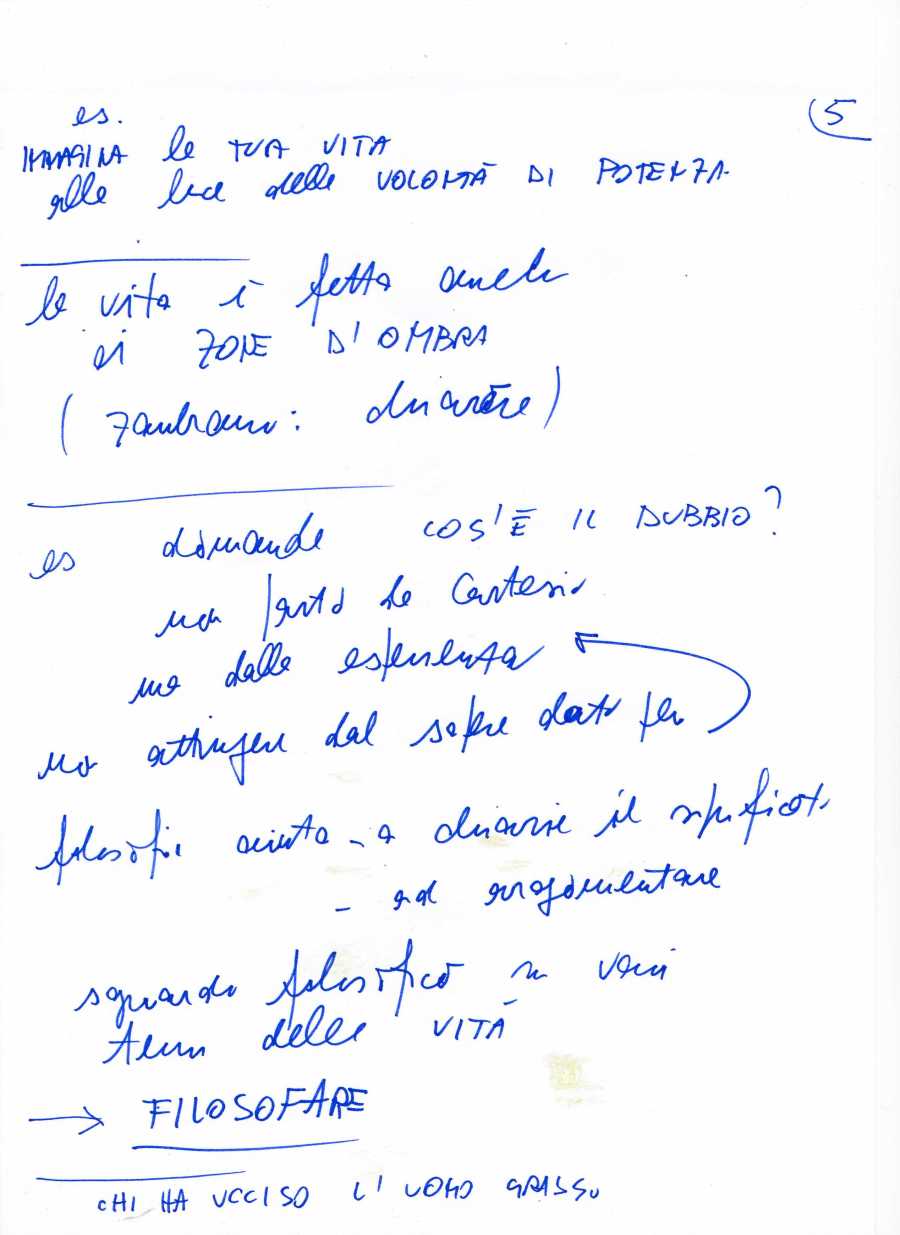 5
es.
IMMAGINA la TUA VITA
alla luce della VOLONTÀ DI POTENZA.
la vita è fatta anche
di ZONE D'OMBRA
(Zambrano: chiarore)
es domande COS'È IL DUBBIO?
non parto da Cartesio
ma dalla esperienza
no attingere dal sapere dato per
filosofia aiuta - a chiarire il significato
- ad argomentare
sguardo filosofico su vari
temi della VITA
→ FILOSOFARE
CHI HA UCCISO L'UOMO GRASSO